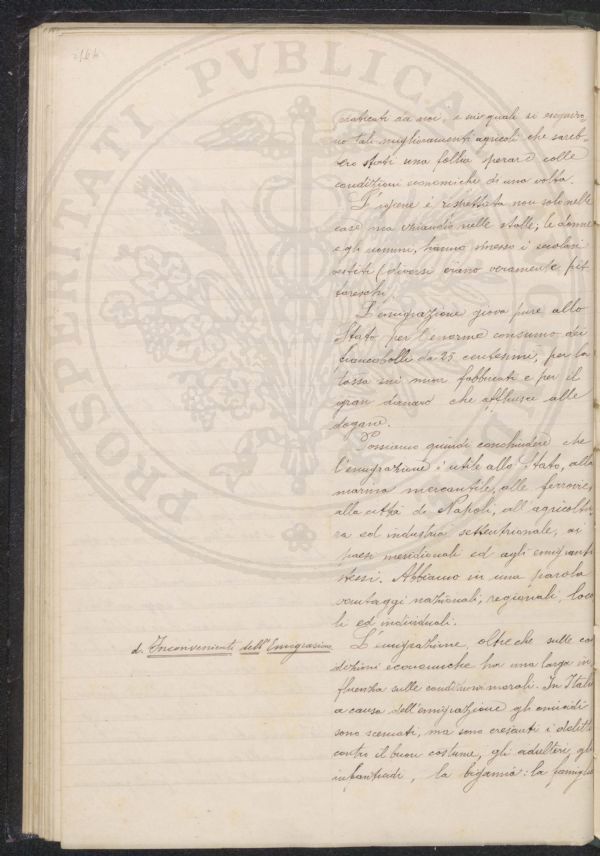 PROSPERITATI PVBLICAE
praticati da noi, e sui quali si eseguiro-
no tali miglioramenti agricoli che sareb-
bero stati una follia sperare colle
condizioni economiche di una volta.
L'igiene è rispettata non solo nelle
case ma eziandio nelle stalle; le donne
e gli uomini, hanno smesso i secolari
vestiti (diversi erano veramente pit
toreschi).
L'emigrazione giova pure allo
Stato per l'enorme consumo dei
francobolli da 25 centesimi, per la
tassa sui nuovi fabbricati e per il
gran denaro che affluisce alle
dogane.
Possiamo quindi conchiudere che
l'emigrazione è utile allo Stato, alla
marina mercantile, alle ferrovie,
alla città di Napoli, all'agricoltu
ra ed industria settentrionale, ai
paesi meridionali ed agli emigranti
stessi. Abbiamo in una parola
vantaggi nazionali, regionali, loca
li ed individuali.
d. Inconvenienti dell'Emigrazione
L'emigrazione, oltre che sulle con
dizioni economiche ha una larga in
fluenza sulle condizioni morali. In Italia
a causa dell'emigrazione gli omicidi
sono scemati, ma sono cresciuti i delitti
contro il buon costume, gli adulteri, gli
infanticidi, la bigamia: la famiglia